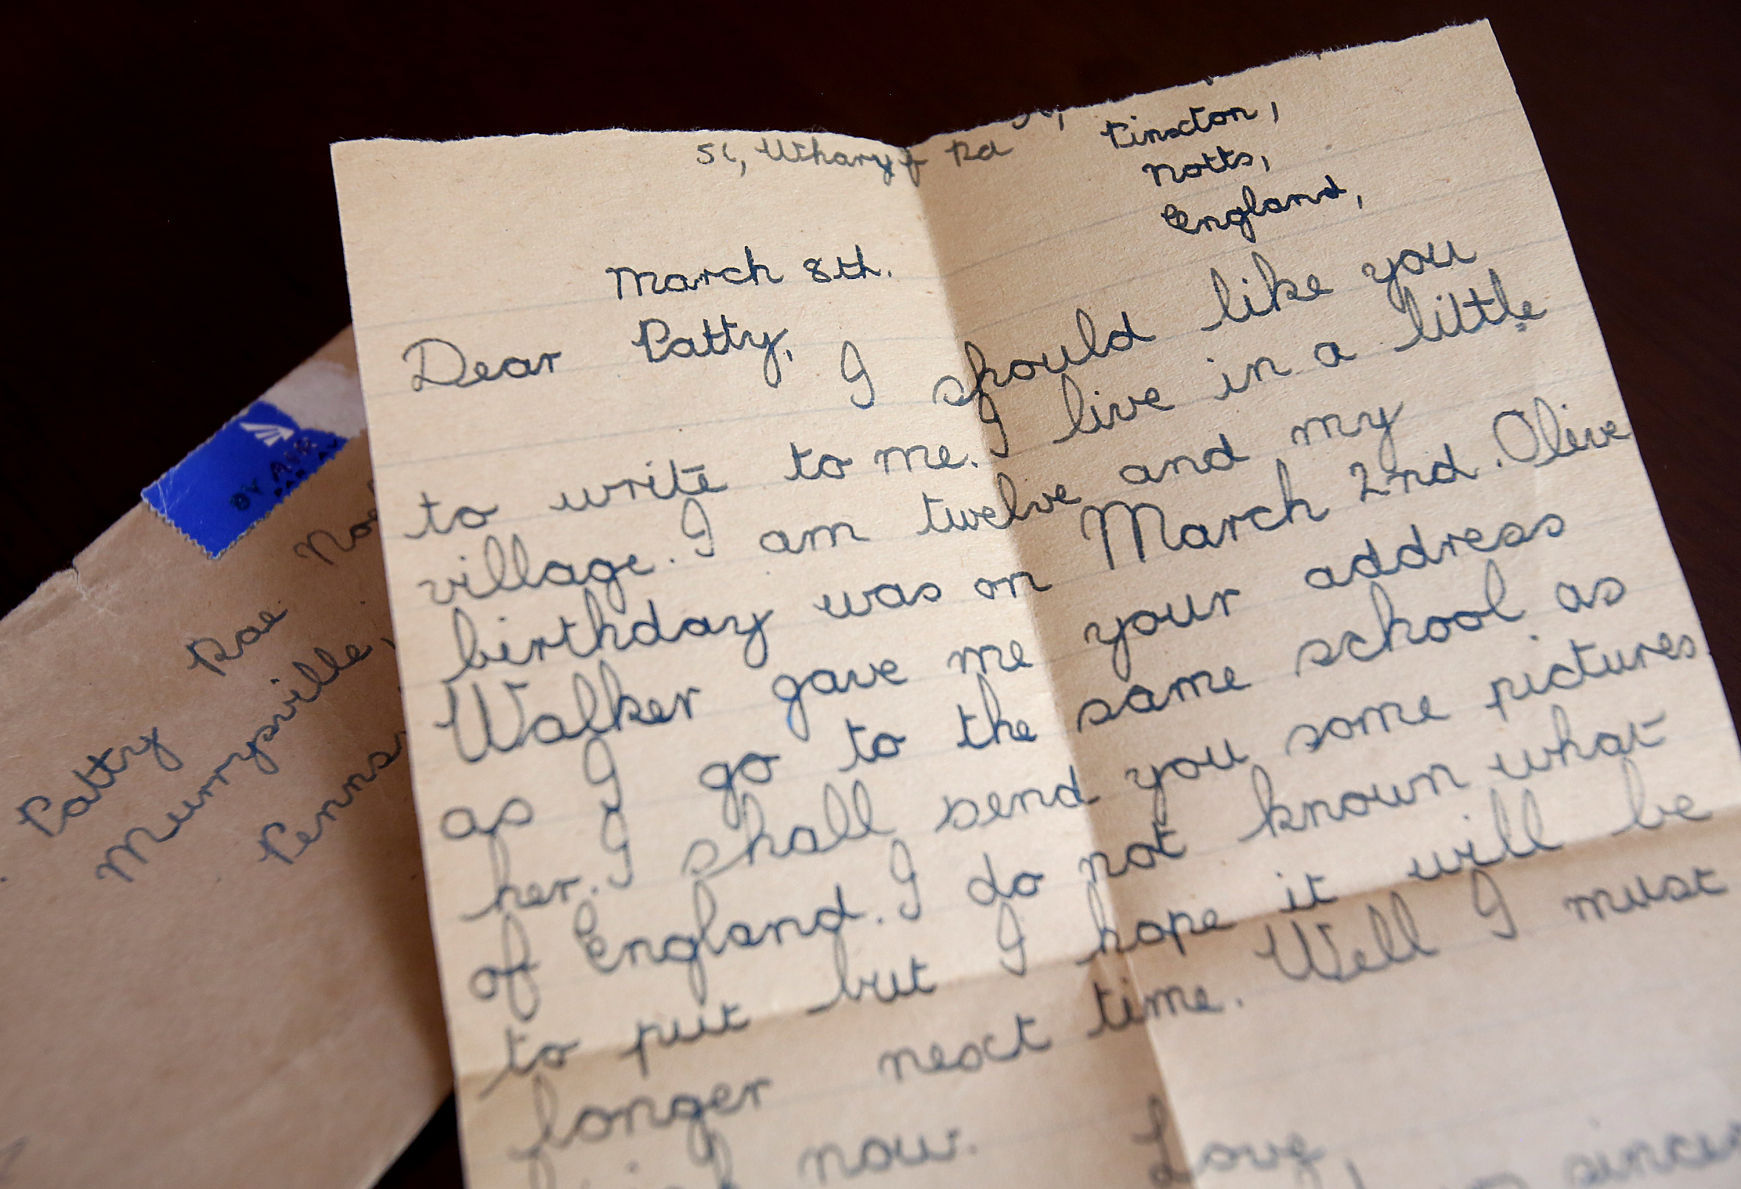 Wharf Rd
Pinxton,
Notts,
England,
March 8th.
Dear Patty,
I should like you
to write to me. I live in a little
village. I am twelve and my
birthday was on March 2nd. Olive
Walker gave me your address
as I go to the same school as
her. I shall send you some pictures
of England. I do not known what
to put but I hope it will be
longer next time. Well I must
now.
Love,
BY AIR
Patty Rae
Murrysville,